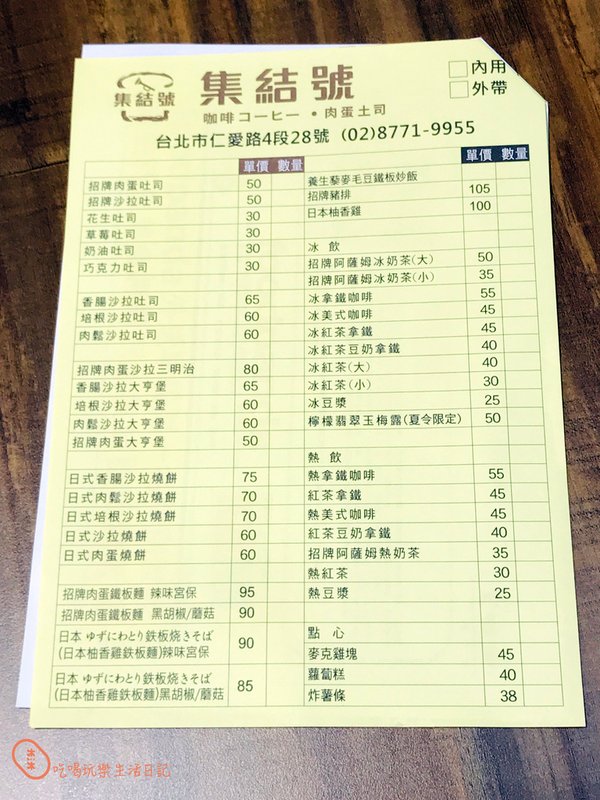 集結號
集結號
咖啡コーヒー・肉蛋土司
台北市仁愛路4段28號 (02)8771-9955
內用
外帶
單價 數量
招牌肉蛋吐司 50
招牌沙拉吐司 50
花生吐司 30
草莓吐司 30
奶油吐司 30
巧克力吐司 30
香腸沙拉吐司 65
培根沙拉吐司 60
肉鬆沙拉吐司 60
招牌肉蛋沙拉三明治 80
香腸沙拉大亨堡 65
培根沙拉大亨堡 60
肉鬆沙拉大亨堡 60
招牌肉蛋大亨堡 50
日式香腸沙拉燒餅 75
日式肉鬆沙拉燒餅 70
日式培根沙拉燒餅 70
日式沙拉燒餅 60
日式肉蛋燒餅 60
招牌肉蛋鐵板麵 辣味宮保 95
招牌肉蛋鐵板麵 黑胡椒/蘑菇 90
日本 ゆずにわとり鉄板焼きそば
(日本柚香雞鉄板麵)辣味宮保 90
日本 ゆずにわとり鉄板焼きそば
(日本柚香雞鉄板麵)黑胡椒/蘑菇 85
單價 數量
養生藜麥毛豆鐵板炒飯
招牌豬排 105
日本柚香雞 100
冰 飲
招牌阿薩姆冰奶茶(大) 50
招牌阿薩姆冰奶茶(小) 35
冰拿鐵咖啡 55
冰美式咖啡 45
冰紅茶拿鐵 45
冰紅茶豆奶拿鐵 40
冰紅茶(大) 40
冰紅茶(小) 30
冰豆漿 25
檸檬翡翠玉梅露(夏令限定) 50
熱 飲
熱拿鐵咖啡 55
紅茶拿鐵 45
熱美式咖啡 45
紅茶豆奶拿鐵 40
招牌阿薩姆熱奶茶 35
熱紅茶 30
熱豆漿 25
點 心
麥克雞塊 45
蘿蔔糕 40
炸薯條 38
吃喝玩樂生活日記